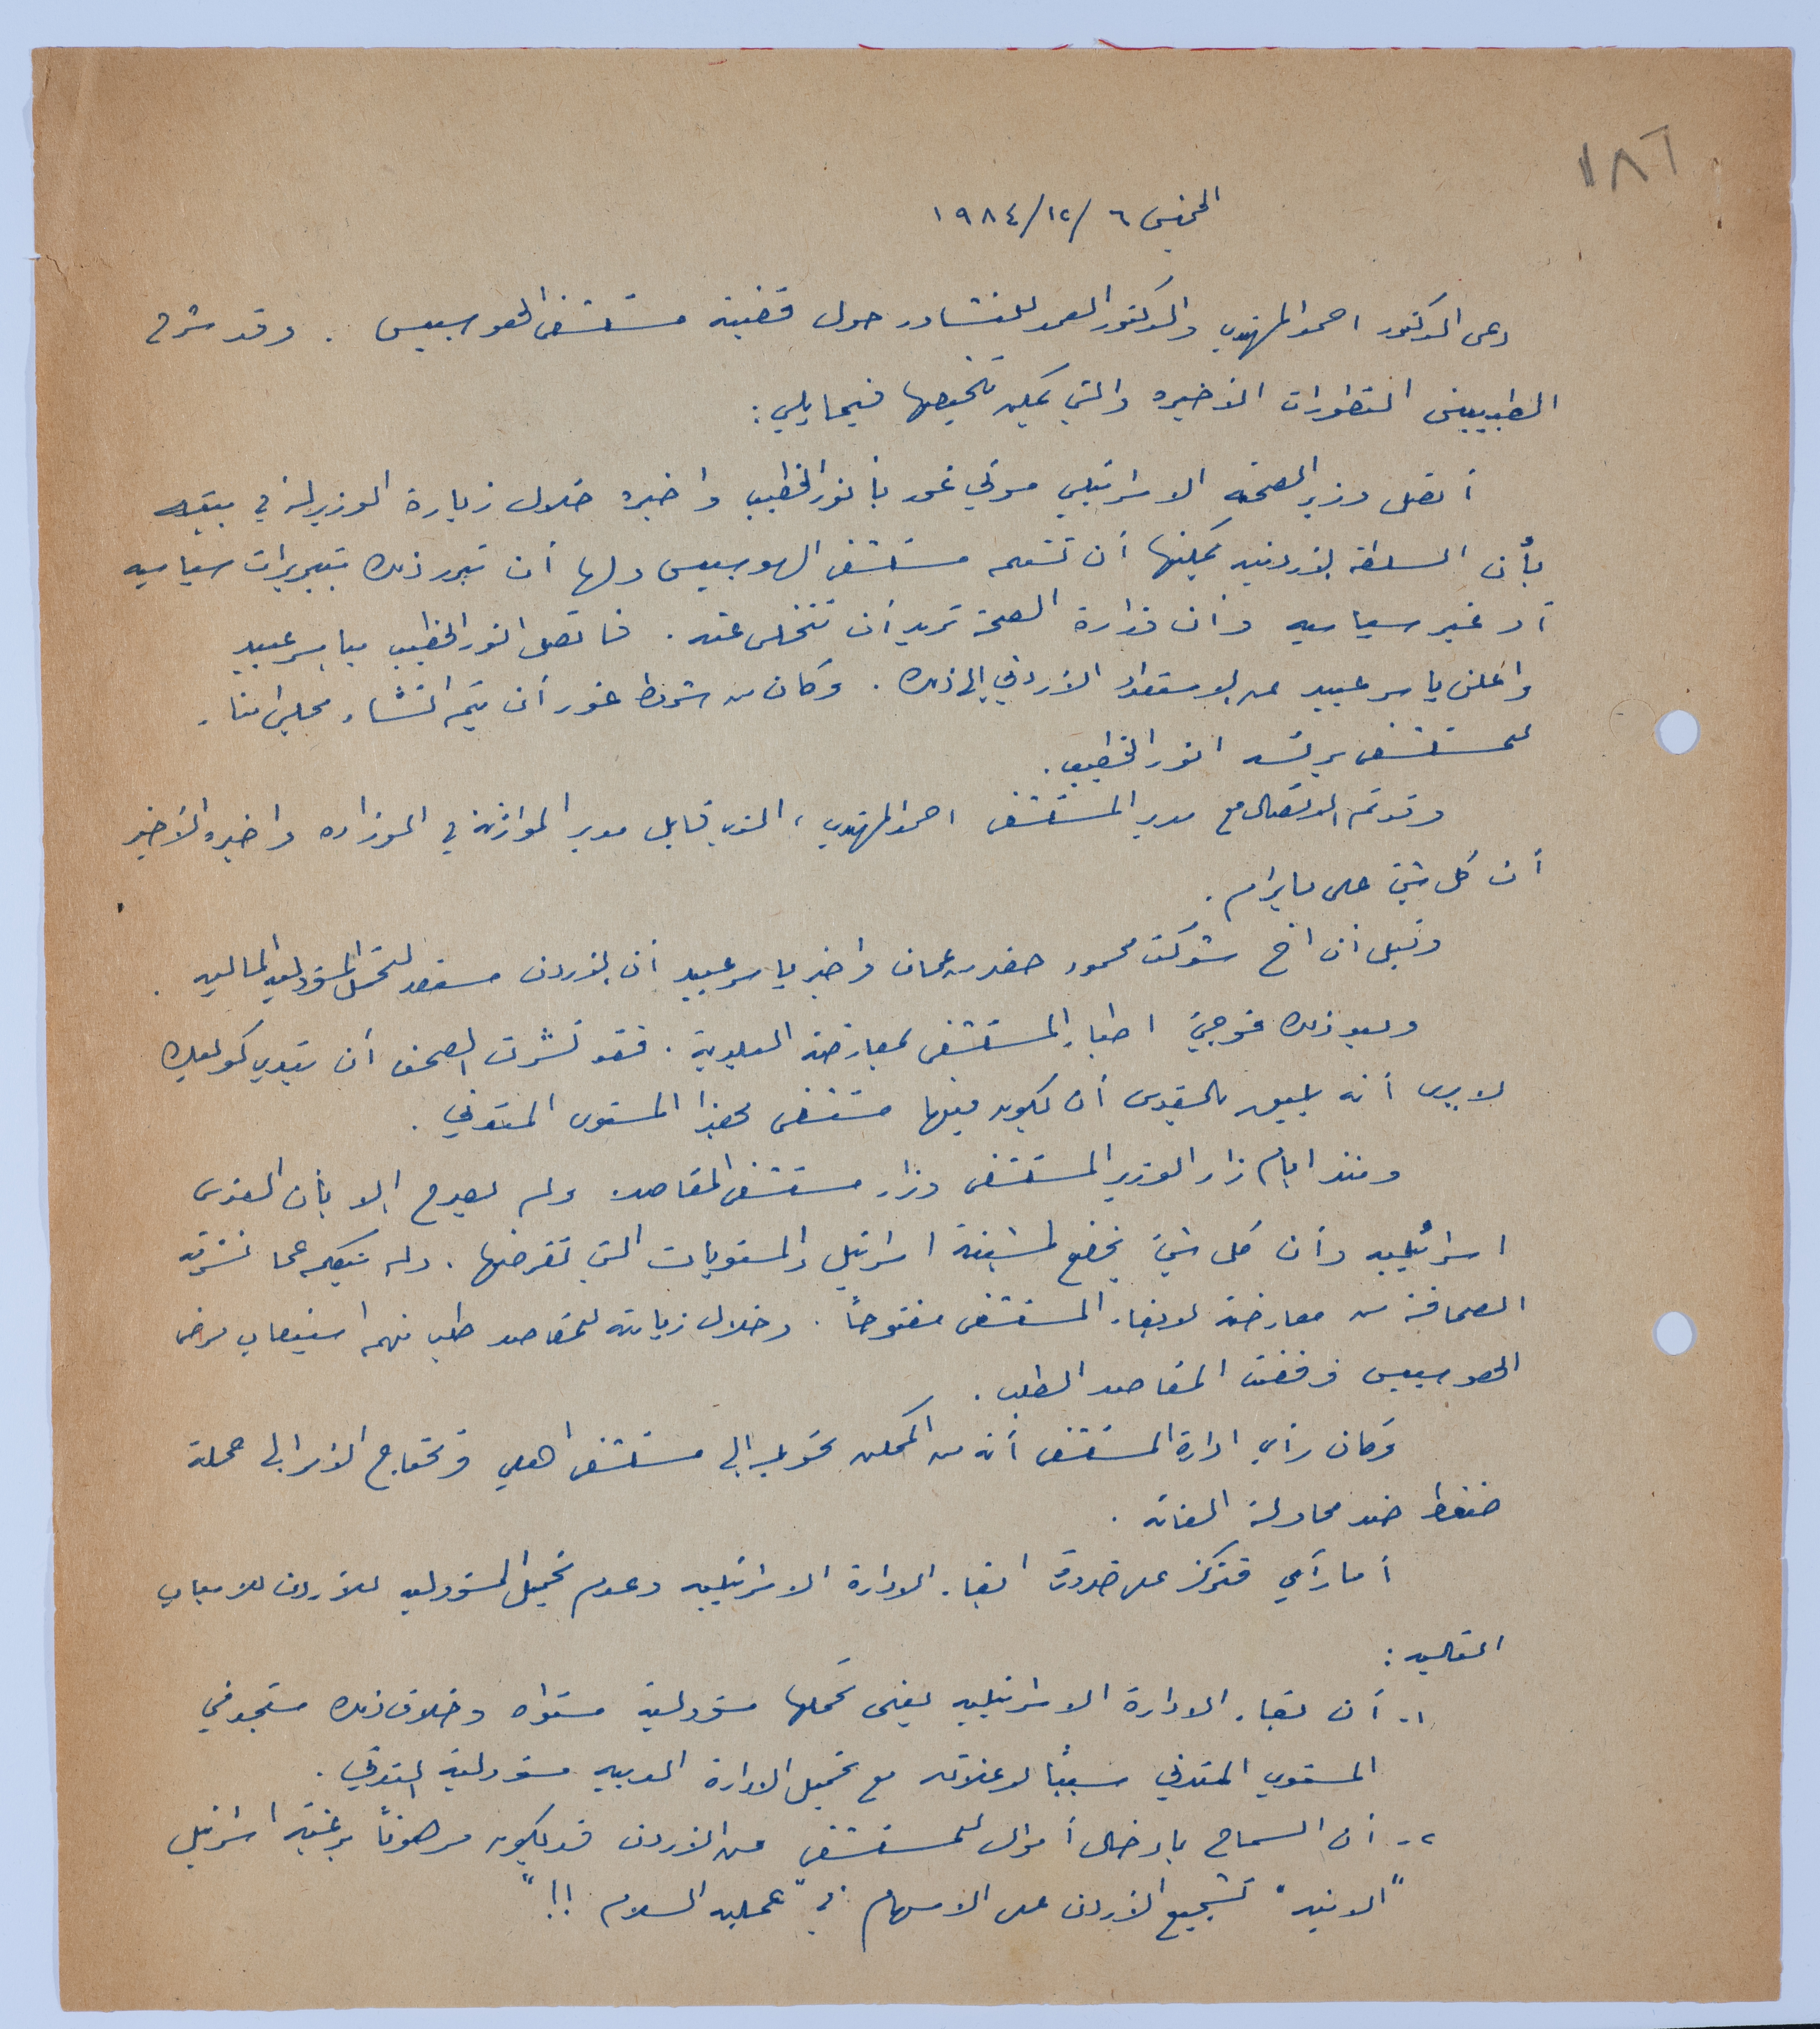 ١٨٦
الخميس ٦/١٢/١٩٨٤
دعى الدكتور احمد المهتدي والدكتور العمد للتشاور حول قضية مستشفى الهوسبيس. وقد شرح
الطبيبين التطورات الأخيره والتي يمكن تلخيصها فيما يلي:
أتصل وزير الصحة الاسرائيلي موتي غور بأنور الخطيب واخبره خلال زيارة الوزير له في بيته
بأن السلطة الأردنيه يمكنها أن تستلم مستشفى الهوسبيس ولها أن تبرر ذلك بتبريرات سياسيه
أو غير سياسيه وأن وزارة الصحة تريد أن تتخلى عنه. فاتصل انور الخطيب بياسر عبيد
واعلن ياسر عبيد عن الاستعداد الأردني إلى ذلك. وكان من شروط غور أن يتم انشاء مجلس امناء
للمستشفى برئسه انور الخطيب.
وقد تم الاتصال مع مدير المستشفى احمد المهتدي، الذي قابل مدير الموازنة في الوزاره واخبره الأخير
أن كل شيئ على ما يرام.
وقيل أن اخ شوكت محمود حضر من عمان واخبر ياسر عبيد أن الأردن مستعد لتحمل المسؤوليه الماليه.
وبعد ذلك فوجئ اطباء المستشفى بمعارضة البلدية. فقد نشرت الصحف أن تيدي كوليك
لا يرى أنه يليق بالقدس أن يكون فيها مستشفى بهذا المستوى المتدني.
ومنذ ايام زار الوزير المستشفى وزار مستشفى المقاصد ولم يصرح إلا بأن القدس
اسرائيليه وأن كل شيئ يخضع لمشيئة اسرائيل والمستويات التي تفرضها. ولم يتكلم عما نشرته
الصحافة من معارضة لابقاء المستشفى مفتوحاً. وخلال زيارته للمقاصد طلب منهم استيعاب مرضى
الهوسبيس فرفضت المقاصد الطلب.
وكان رأي ادارة المستشفى أنه من الممكن تحويله إلى مستشفى اهلي وتحتاج الأمر إلى حملة
ضغط ضد محاولة الغائه.
أما رأيي فتركز على ضرورة ابقاء الادارة الاسرائيليه وعدم تحميل المسؤوليه للأردن للاسباب
التاليه:
١- أن بقاء الادارة الاسرائيليه يعنى تحملها مسؤولية مستواه وخلاف ذلك ستجد في
المستوي المتدني سبباً لاغلاقه مع تحميل الادارة العربيه مسؤولية التدني.
٢- أن السماح بادخال أموال للمستشفى من الأردن قد يكون مرهوناً برغبة اسرائيل
"الانيه" تشجيع الأردن على الاسهام في "عمليه السلام !!"